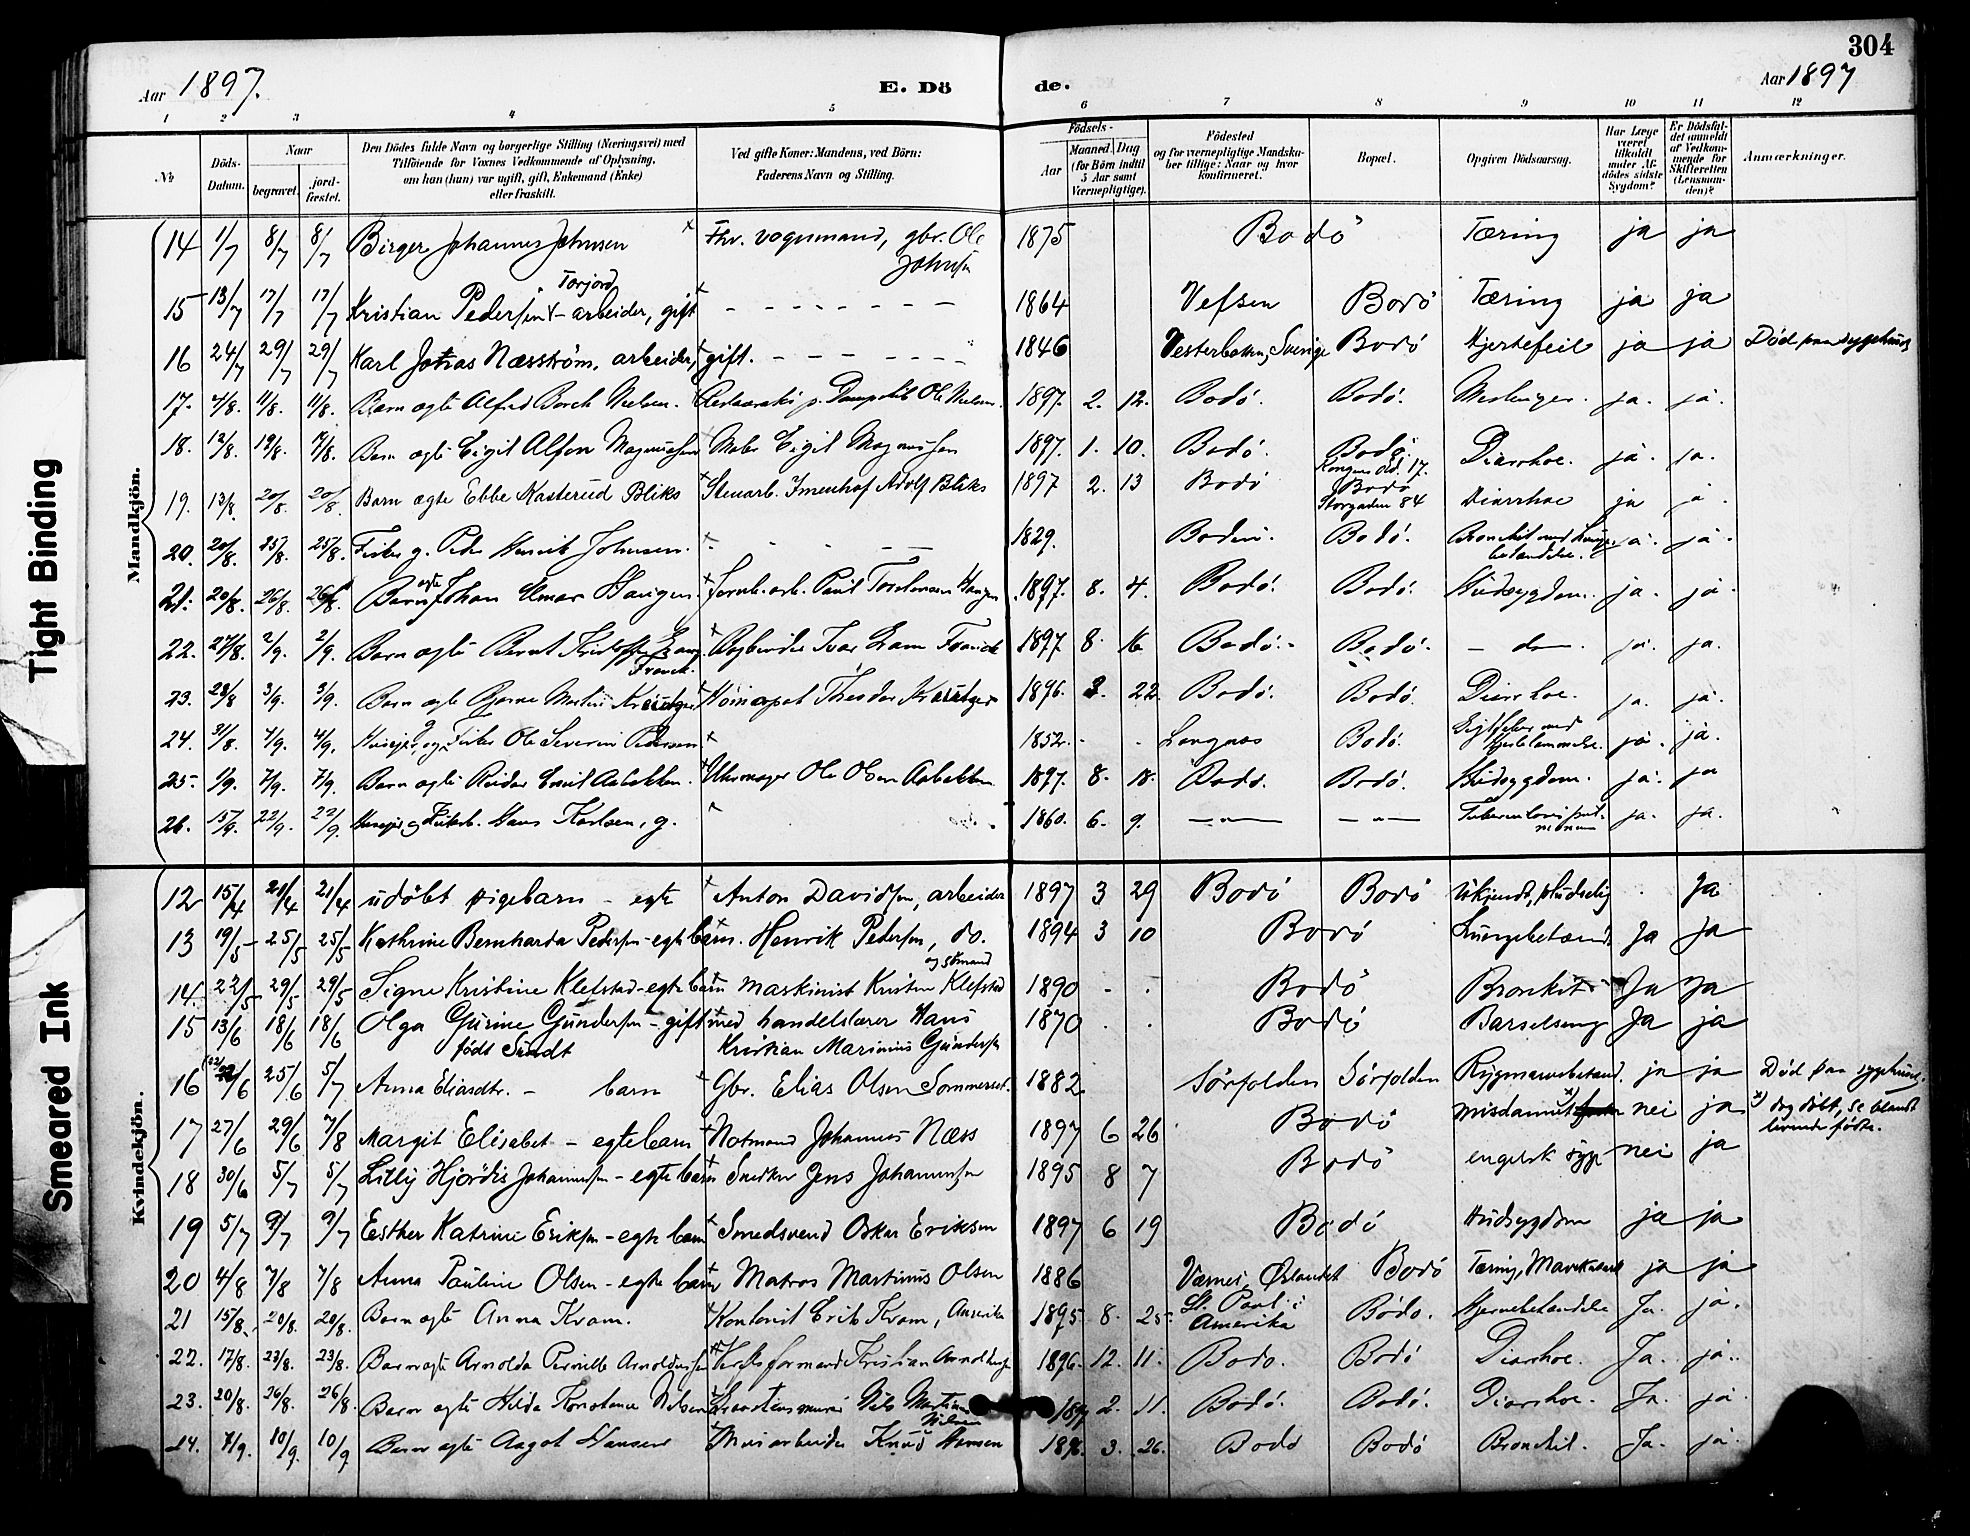 304
Aar 1897.
E. Dö
de.
Aar 1897
1 2 3 4 5 6 7 8 9 10 11 12
No.
Döds-Datum.
Naar
begravet.
jord-fæstet.
Den Dödes fulde Navn og borgerlige Stilling (Næringsvei) med
Tilföiende for Voxnes Vedkommende af Oplysning,
om han (hun) var ugift, gift, Enkemand (Enke)
eller fraskilt.
Ved gifte Koner: Mandens, ved Börn:
Faderens Navn og Stilling.
Födsels-
Aar
Maaned. Dag
(for Börn indtil
5 Aar samt
Værnepligtige).
Födested
og for værnepligtige Mandska-
ber tillige: Naar og hvor
konfirmeret.
Bopæl.
Opgiven Dödsaarsag.
Har Læge
været
tilkaldt
under Af-
dödes sidste
Sygdom?
Er Dödsfal-
det anmeldt
af Vedkom-
mende for
Skifteretten
(Lensman-
den)?
Anmærkninger.
Mandkjön.
14 1/7 8/7 8/7 Birger Johannes Johnsen Fhv. vognmand, gbr. Ole Johnsen 1875 Bodö Tæring ja ja
15 13/7 17/7 17/7 Kristian Pedersen Torjord - arbeider, gift - - - - 1864 Vefsen Bodö Tæring ja ja
16 24/7 29/7 29/7 Karl Næsström, arbeider, gift. - - - - 1846 Sverige Bodö Hjertefeil ja ja Död paa sygehuset
17. 4/8. 11/8. 11/8. Barn ægte Alfred Borch Nielsen. Ole Nielsen. 1897. 2. 12. Bodö. Bodö. Meslinger. ja. ja.
18. 12/8. 19/8. Barn ægte Eigil Alfon Magnussen Maler Eigil Magnussen 1897. 1. 10. Bodö. Bodö. 17. Diarrhoe. ja. ja.
19. 13/8. 20/8. 20/8. Barn ægte Ebbe Kasterud Bliks Stenarb. Adolf Bliks 1897 2. 13 Bodö Bodö Storgaden 84 Diarrhoe ja
20. 20/8. 25/8. 25/8. Fisker g. Peder Henrik Johnsen. - - - 1829. Bodin. Bodö. Bronchit med Lunge-betændelse. ja. ja.
21. 20/8. 26/8. 26/8. Barn ægte Johan Elmar Haugen Paul Haugen 1897. 8. 4. Bodö. Bodö. Hudsygdom. ja. ja.
22. 27/8. 2/9. 2/9. Barn ægte Bernt Franck. Bogbinder Ivar Franck 1897 8. 16 Bodö. Bodö. - do -. ja. ja.
23. 28/8 3/9. 3/9. Barn ægte Bjarne Martin Theodor 1896. 3. 22. Bodö. Bodö. Diarrhoe. ja. ja.
24. 31/8. 7/9. Huseier og Fisker Ole Severin Pedersen 1852. - - Langnes Bodö. ja. ja.
25 1/9. 7/9. 7/9. Barn ægte Reidar Emil Aabakken. Uhrmager Ole Olsen Aabakken 1897. 8. 18. Bodö. Bodö. Hudsygdom. ja. ja
26. 15/9. 22/9. 22/9. Huseier og Fiskerb. Hans Karlsen, g. 1860. 6. 9. - " - - " - Tuberculosis pul-monum ja. ja.
Kvindekjön.
12 15/4 21/4 21/4 udöbt pigebarn - egte Anton Davidsen, arbeider 1897 3 29 Bodö Bodö Ukjendt, pludselig Ja
13 19/5 25/5 25/5 Kathrine Bernharda Pedersen - egte barn. Henrik Pedersen, do. og sömand 1894 3 10 Bodö Lungebetænd. Ja Ja
14. 22/5 29/5 29/5 Signe Kristine Klefstad - egte barn maskinist Kristen Klefstad 1890 - . Bodö Bronkit Ja Ja
15 13/6 18/6 18/6 Olga Gurine Gundersen - gift med handelslærer Hans
födt Sundt Kristian Marinius Gundersen 1870 . . Bodö Barselseng Ja ja
16 22/6 25/6 5/7 Anna Eliasdtr. - barn Gbr. Elias Olsen Sommerset. 1882 Sörfolden Sörfolden Rygmarvsbetænd. ja ja Död paa sygehuset.
17 27/6 29/6 7/8 Margit Elisabet - egte barn Notmand Johannes Næss 1897 6 26 Bodö misdannet x) nei ja x) dog döbt, se blandt levende födte.
18 30/6 5/7 5/7 Lilly Hjördis Johannessen - egte barn Snedker Jens Johannessen 1895 8 7 Bodö engelsk syge nei ja
19 5/7 9/7 9/7 Esther Katrine Eriksen - egte barn Smedsvend Oskar Eriksen 1897 6 19 Bodö Hudsygdom ja ja
20 4/8 7/8 7/8 Anna Pauline Olsen - egte barn Matros Martinus Olsen 1886 Værnes, Bodö Tæring, ja ja
21 15/8. 20/8. 20/8. Barn ægte Anna Kram. Kontorist Erik Kram, Amerika 1895 8. 25. St. Paul i Amerika Bodö. Hjernebetændelse Ja. ja.
22. 17/8. 23/8. 23/8. Barn ægte Arnolda Pernille Arnoldussen Kristian Arnoldussen 1896. 12. 11. Bodö. Bodö Diarrhoe. Ja. ja.
23. 20/8. 26/8. 26/8. Barn ægte Hilda Konstance Nilsen Nils Martin Nilsen 1897 2. 11. Bodö. Bodö. Diarrhoe. Ja. ja
24. 7/9. 10/9 10/9 Barn ægte Aagot Hansen Knud Hansen 1896. 3. 26. Bodö Bodö Bronchit. Ja. ja.
Tight Binding
Smeared Ink